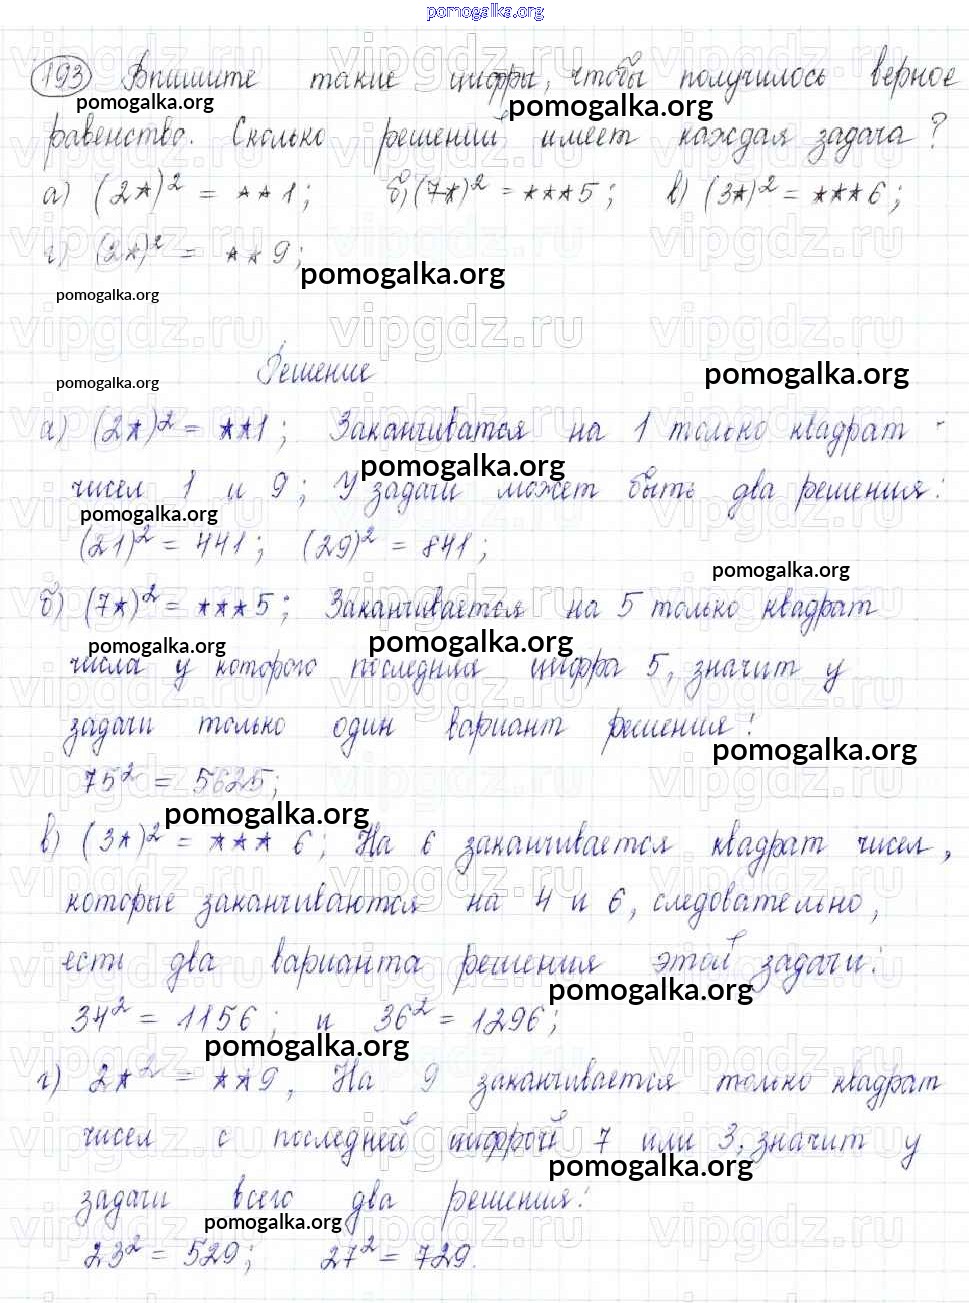 pomogalka.org
193 Впишите такие цифры, чтобы получилось верное
pomogalka.org pomogalka.org
равенство. Сколько решений имеет каждая задача?
а) (2*)² = **1; б) (7*)² = ***5; в) (3*)² = ***6;
г) (2*)² = **9;
pomogalka.org
pomogalka.org
vipgdz.ru vipgdz.ru vipgdz.ru
Решение
pomogalka.org pomogalka.org
а) (2*)² = **1; Заканчиватся на 1 только квадрат
pomogalka.org
чисел 1 и 9; У задачи может быть два решения:
pomogalka.org
(21)² = 441; (29)² = 841;
pomogalka.org
б) (7*)² = ***5; Заканчивается на 5 только квадрат
pomogalka.org pomogalka.org
числа у которого последняя цифра 5, значит у
задачи только один вариант решения:
pomogalka.org
75² = 5625;
pomogalka.org
в) (3*)² = *** 6; На 6 заканчивается квадрат чисел,
которые заканчиваются на 4 и 6, следовательно,
есть два варианта решения этой задачи:
pomogalka.org
34² = 1156; и 36² = 1296;
pomogalka.org
г) 2*² = **9, На 9 заканчивается только квадрат
чисел с последней цифрой 7 или 3, значит у
pomogalka.org
задачи всего два решения:
pomogalka.org
23² = 529; 27² = 729.